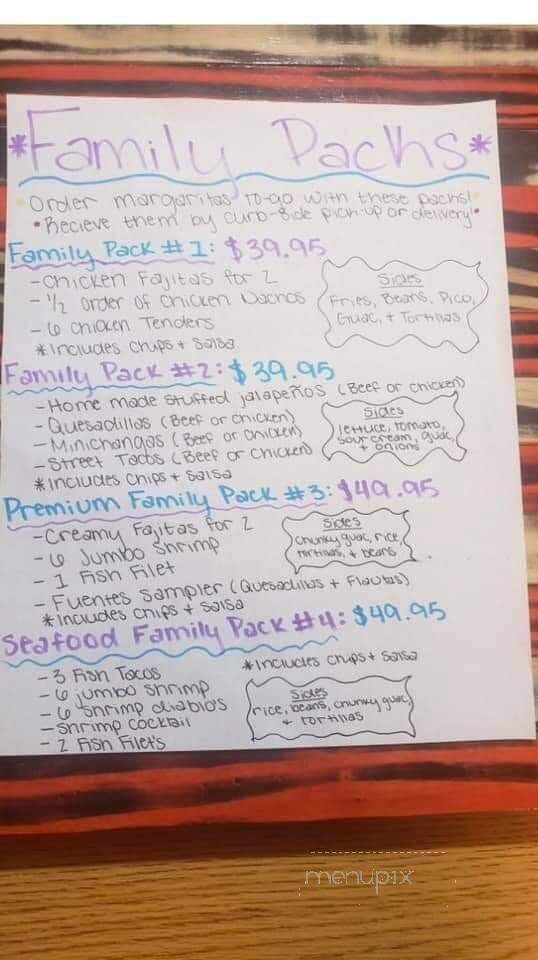 *Family Packs*
• Order margaritas to-go with these packs! •
• Recieve them by curb-side pick-up or delivery! •
Family Pack #1: $39.95
- Chicken Fajitas for 2
- 1/2 order of Chicken Nachos
- 6 Chicken Tenders
*Includes Chips + Salsa
Sides
Fries, Beans, Pico,
Guac, + Tortillas
Family Pack #2: $39.95
- Home made Stuffed jalapeños (Beef or Chicken)
- Quesadillas (Beef or Chicken)
- Minichangas (Beef or Chicken)
- Street Tacos (Beef or Chicken)
*Includes Chips + Salsa
Sides
lettuce, tomato,
sour cream, guac,
+ onions
Premium Family Pack #3: $49.95
- Creamy Fajitas for 2
- 6 Jumbo Shrimp
- 1 Fish Filet
- Fuentes Sampler (Quesadillas + Flautas)
*Includes Chips + Salsa
Sides
Chunky guac, rice,
tortillas, + beans
Seafood Family Pack #4: $49.95
- 3 Fish Tacos
- 6 jumbo shrimp
- 6 Shrimp diablos
- Shrimp cocktail
- 2 Fish Filet's
*Includes Chips + Salsa
Sides
rice, beans, chunky guac,
+ tortillas
menupix